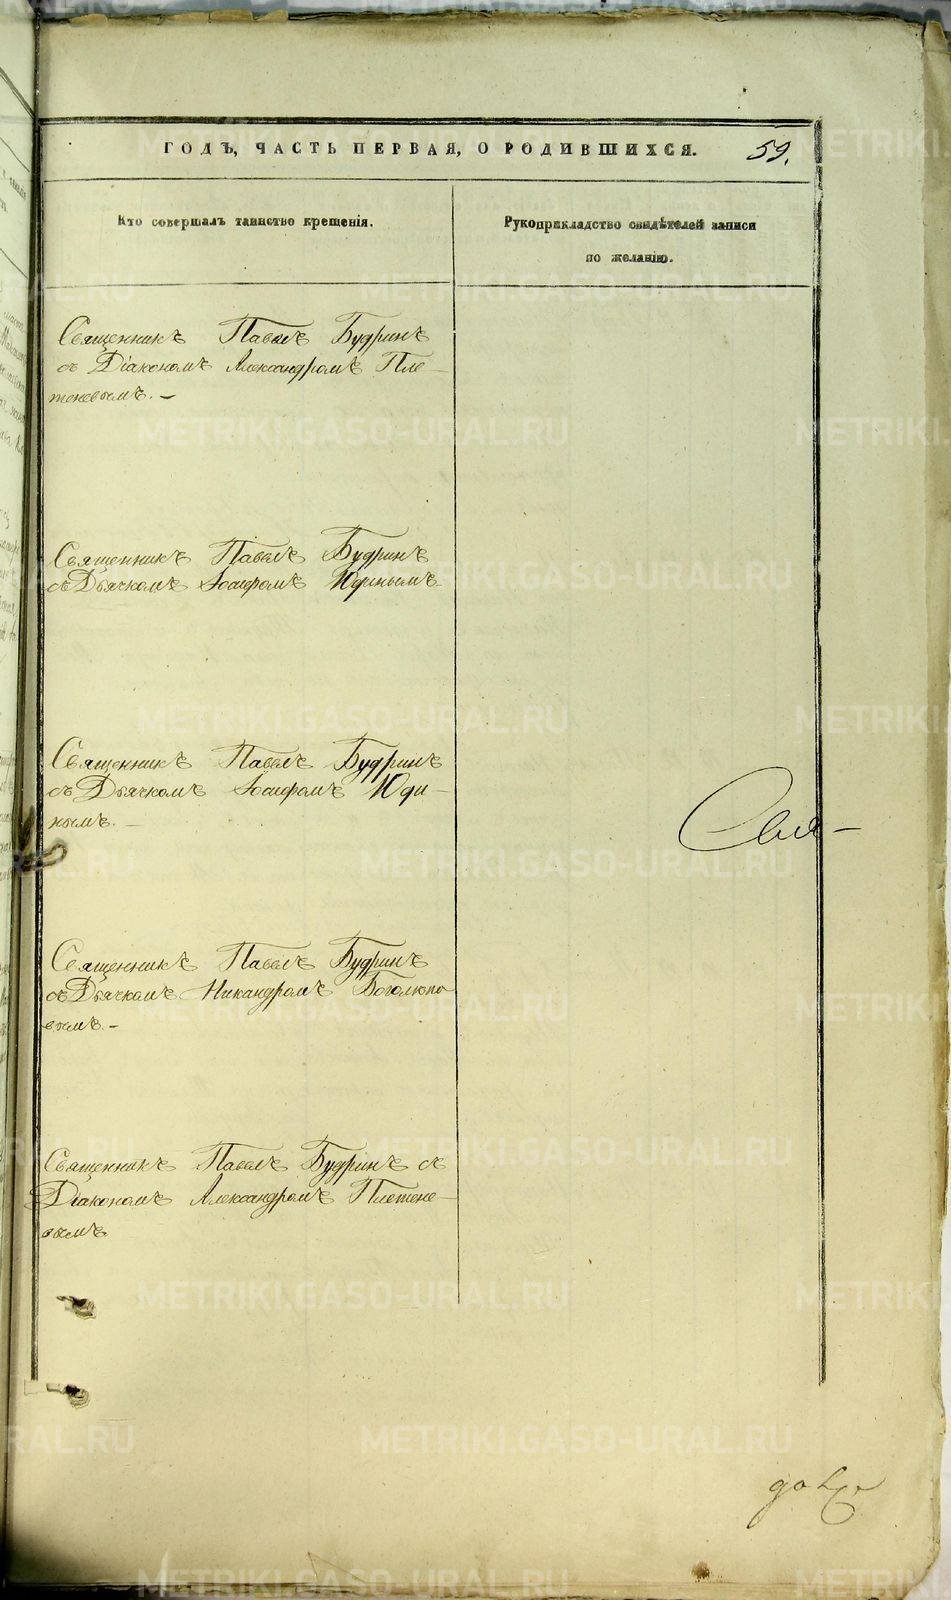 ГОДЪ, ЧАСТЬ ПЕРВАЯ, О РОДИВШИХСЯ. 59.
Кто совершалъ таинство крещенія.
Рукоприкладство свидѣтелей записи
по желанію.
Священникъ Павелъ Будринъ
съ Діакономъ Александромъ Пле-
теневымъ. —
Священникъ Павелъ Будринъ
съ Дьячкомъ Іосифомъ Юдинымъ
Священникъ Павелъ Будринъ
съ Дьячкомъ Іосифомъ Юди-
нымъ. —
Свя-
Священникъ Павелъ Будринъ
съ Дьячкомъ Никандромъ Боголюпо
вымъ. —
Священникъ Павелъ Будринъ съ
Діакономъ Александромъ Плетене-
вымъ
METRIKI.GASO-URAL.RU